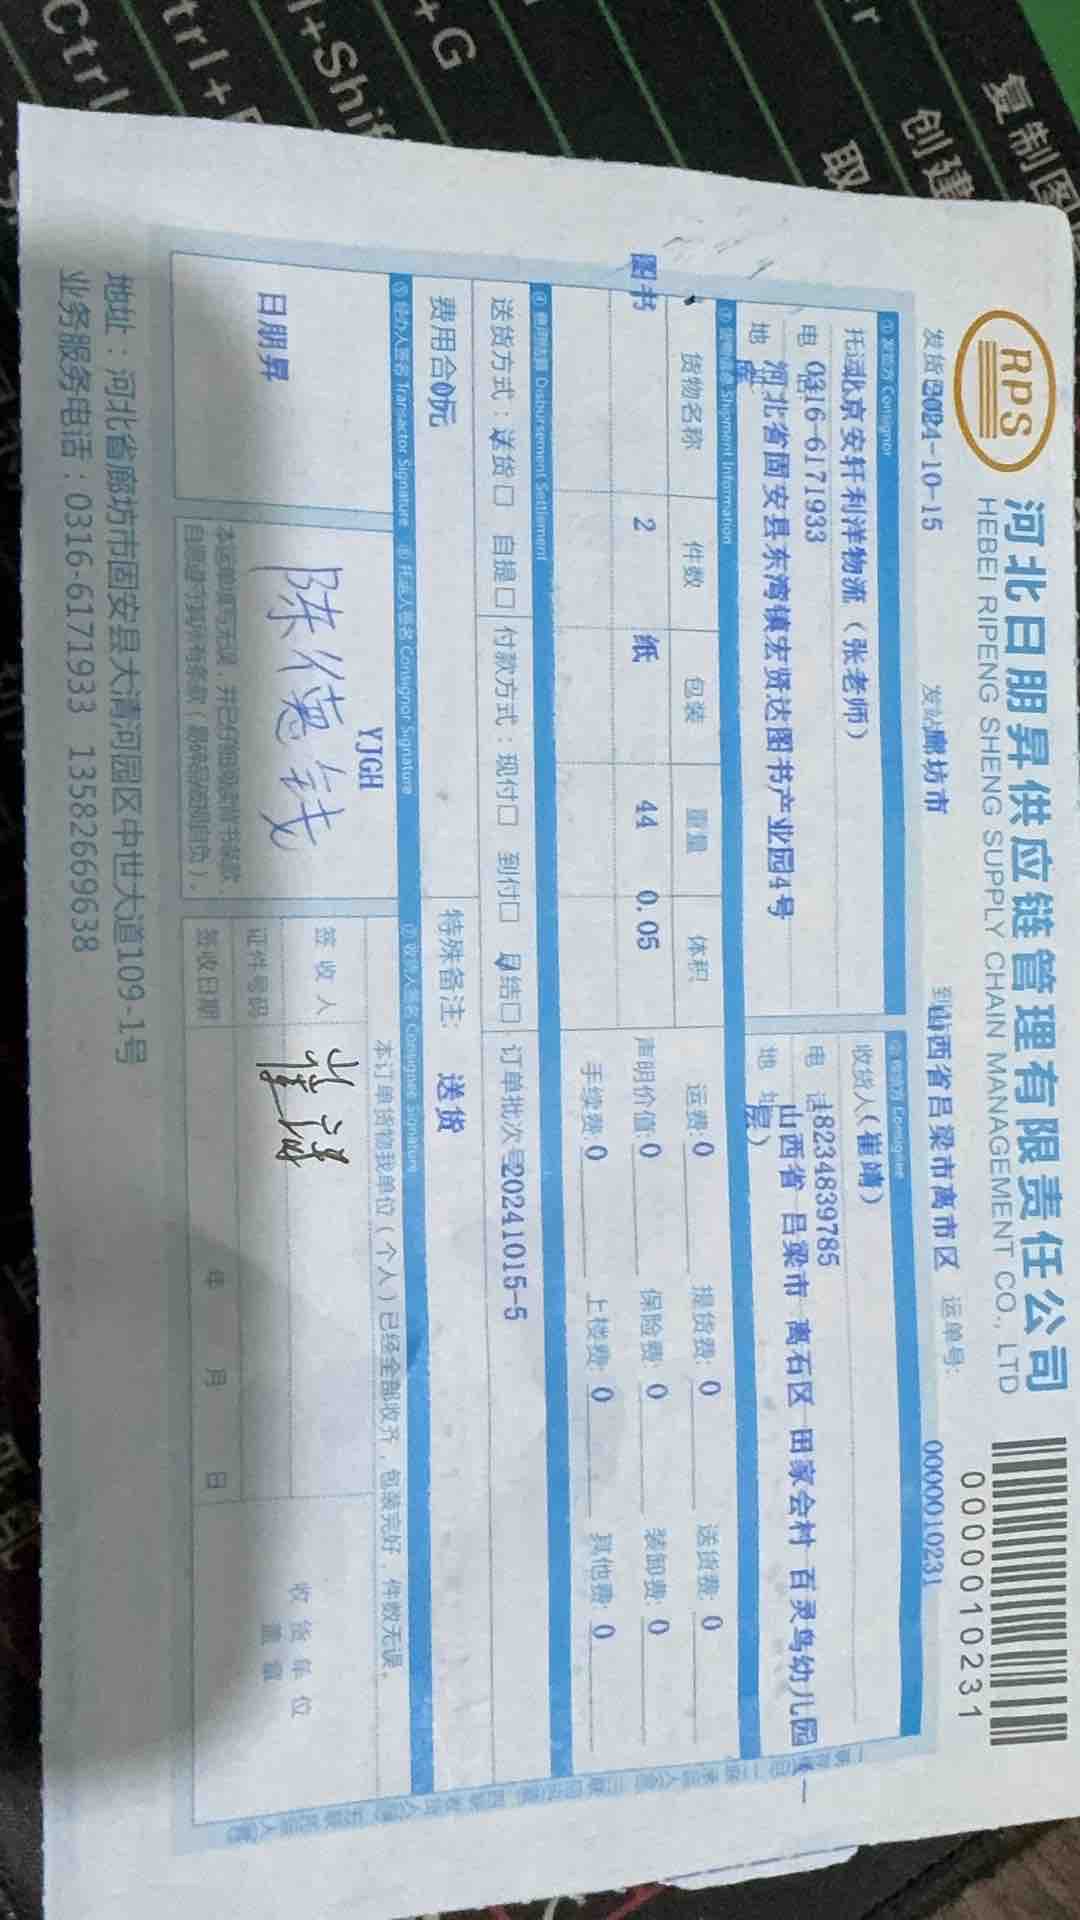 Ctrl
trl+
l+Shif
+G
复制图
创建
取
RPS
河北日朋昇供应链管理有限责任公司
HEBEI RIPENG SHENG SUPPLY CHAIN MANAGEMENT CO., LTD
0000010231
发货日2024-10-15 发站廊坊市 到山西省吕梁市离市区 运单号: 0000010231
① 发货方 Consignor
托运北京安轩利洋物流（张老师）
电 话0316-6171933
地 河北省固安县东湾镇宏贤达图书产业园4号
② 收货方 Consignee
收货人(崔靖)
电 话18234839785
地 址山西省 吕梁市 离石区 田家会村 百灵鸟幼儿园（一
层）
③ 货物信息 Shipment Information
货物名称 件数 包装 重量 体积
图书 2 纸 44 0.05
运费: 0 提货费: 0 送货费: 0
声明价值: 0 保险费: 0 装卸费: 0
手续费: 0 上楼费: 0 其他费: 0
④ 费用结算 Disbursement Settlement
送货方式：送货□ 自提□ 付款方式：现付□ 到付□ 月结□ 订单批次号20241015-5
费用合0元 特殊备注: 送货
⑤ 经办人签名 Transactor Signature ⑥ 托运人签名 Consignor Signature ⑦ 收货人签名 Consignee Signature
日朋昇
YJGH
本订单货物我单位(个人)已经全部收齐，包装完好，件数无误。
签收人
证件号码
签收日期 年 月 日
收货单位
盖章
地址：河北省廊坊市固安县大清河园区中世大道109-1号
业务服务电话：0316-6171933 13582669638